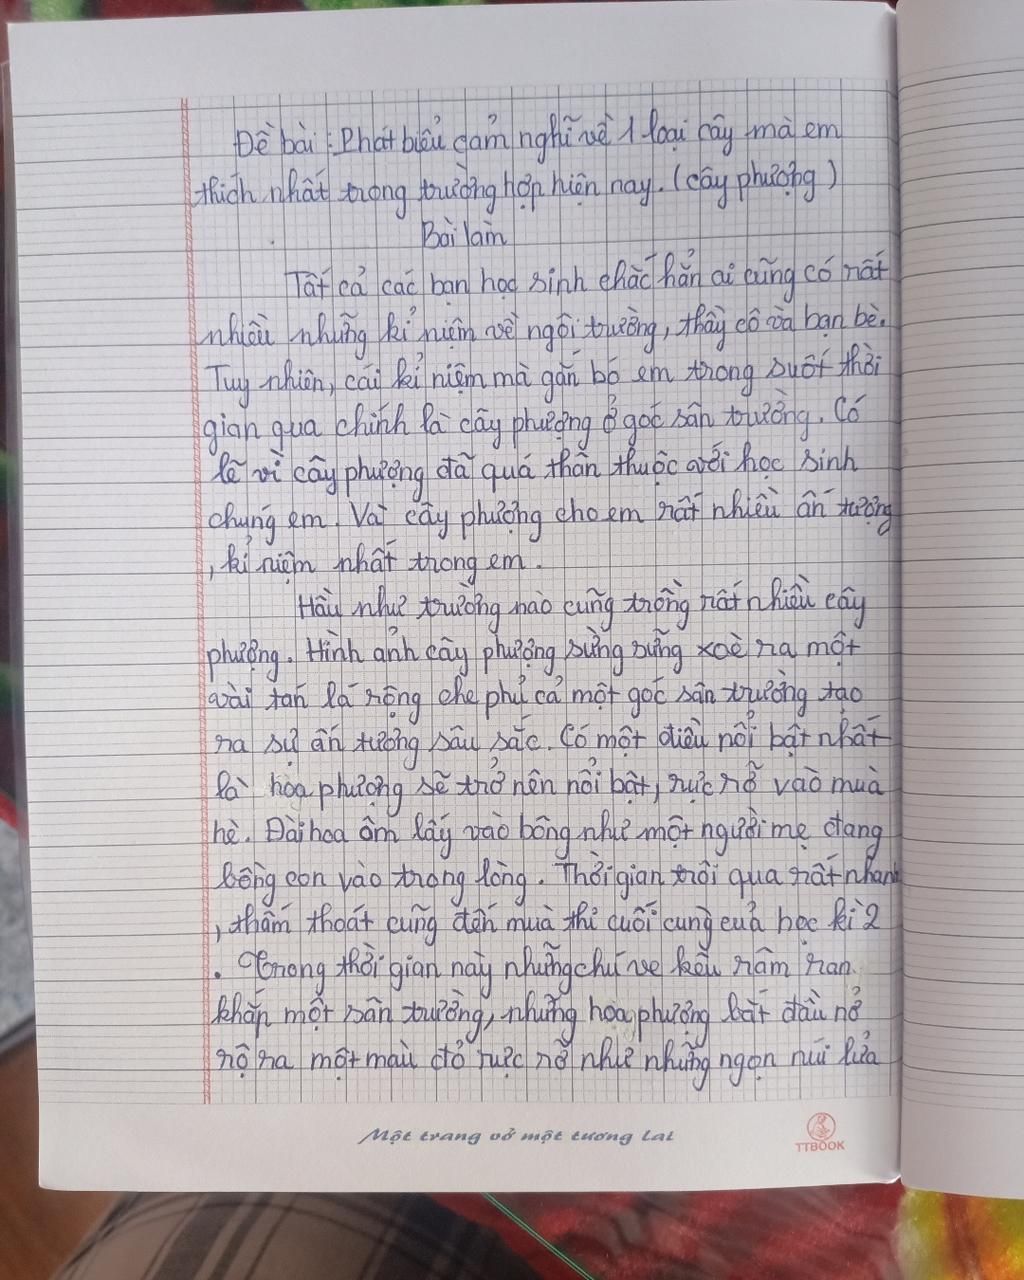 Đề bài: Phát biểu cảm nghĩ về 1 loại cây mà em
thích nhất trong trường hợp hiện nay. (cây phượng)
Bài làm
Tất cả các bạn học sinh chắc hẳn ai cũng có rất
nhiều những kỉ niệm về ngôi trường, thầy cô và bạn bè.
Tuy nhiên, cái kỉ niệm mà gắn bó em trong suốt thời
gian qua chính là cây phượng ở góc sân trường. Có
lẽ vì cây phượng đã quá thân thuộc với học sinh
chúng em. Và cây phượng cho em rất nhiều ấn tượng
, kỉ niệm nhất trong em.
Hầu như trường nào cũng trồng rất nhiều cây
phượng. Hình ảnh cây phượng sừng sững xoè ra một
vài tán lá rộng che phủ cả một góc sân trường tạo
ra sự ấn tượng sâu sắc. Có một điều nổi bật nhất
là hoa phượng sẽ trở nên nổi bật, rực rỡ vào mùa
hè. Đài hoa ôm lấy vào bông như một người mẹ đang
bồng con vào trong lòng. Thời gian trôi qua rất nhanh
, thấm thoát cũng đến mùa thi cuối cùng của học kì 2
. Trong thời gian này những chú ve kêu râm ran
khắp một sân trường, những hoa phượng bắt đầu nở
rộ ra một màu đỏ rực rỡ như những ngọn núi lửa
Một trang vở một tương lai
TTBOOK